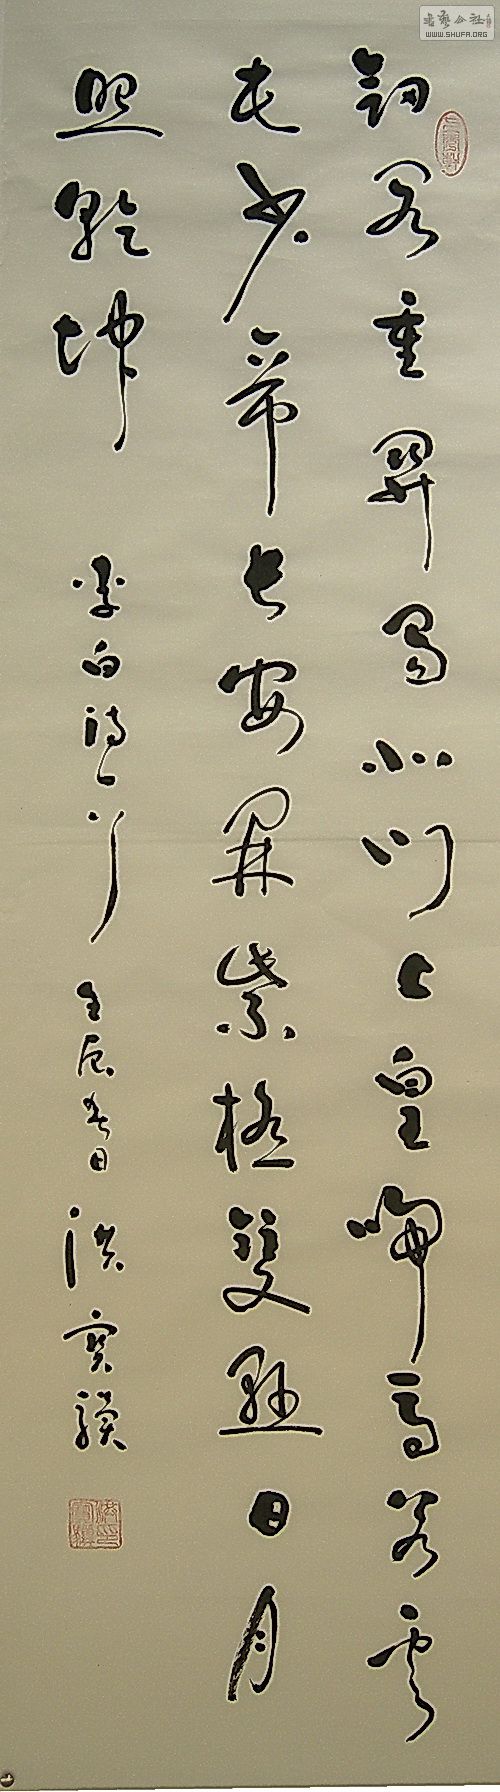 書藝公社
WWW.SHUFA.ORG
劍閣重關蜀北門上皇歸馬若雲
屯少帝長安開紫極雙懸日月
照乾坤 李白詩一首 壬辰春日 洪